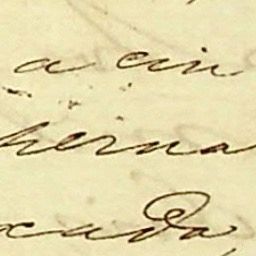 a cin
herna
cada,